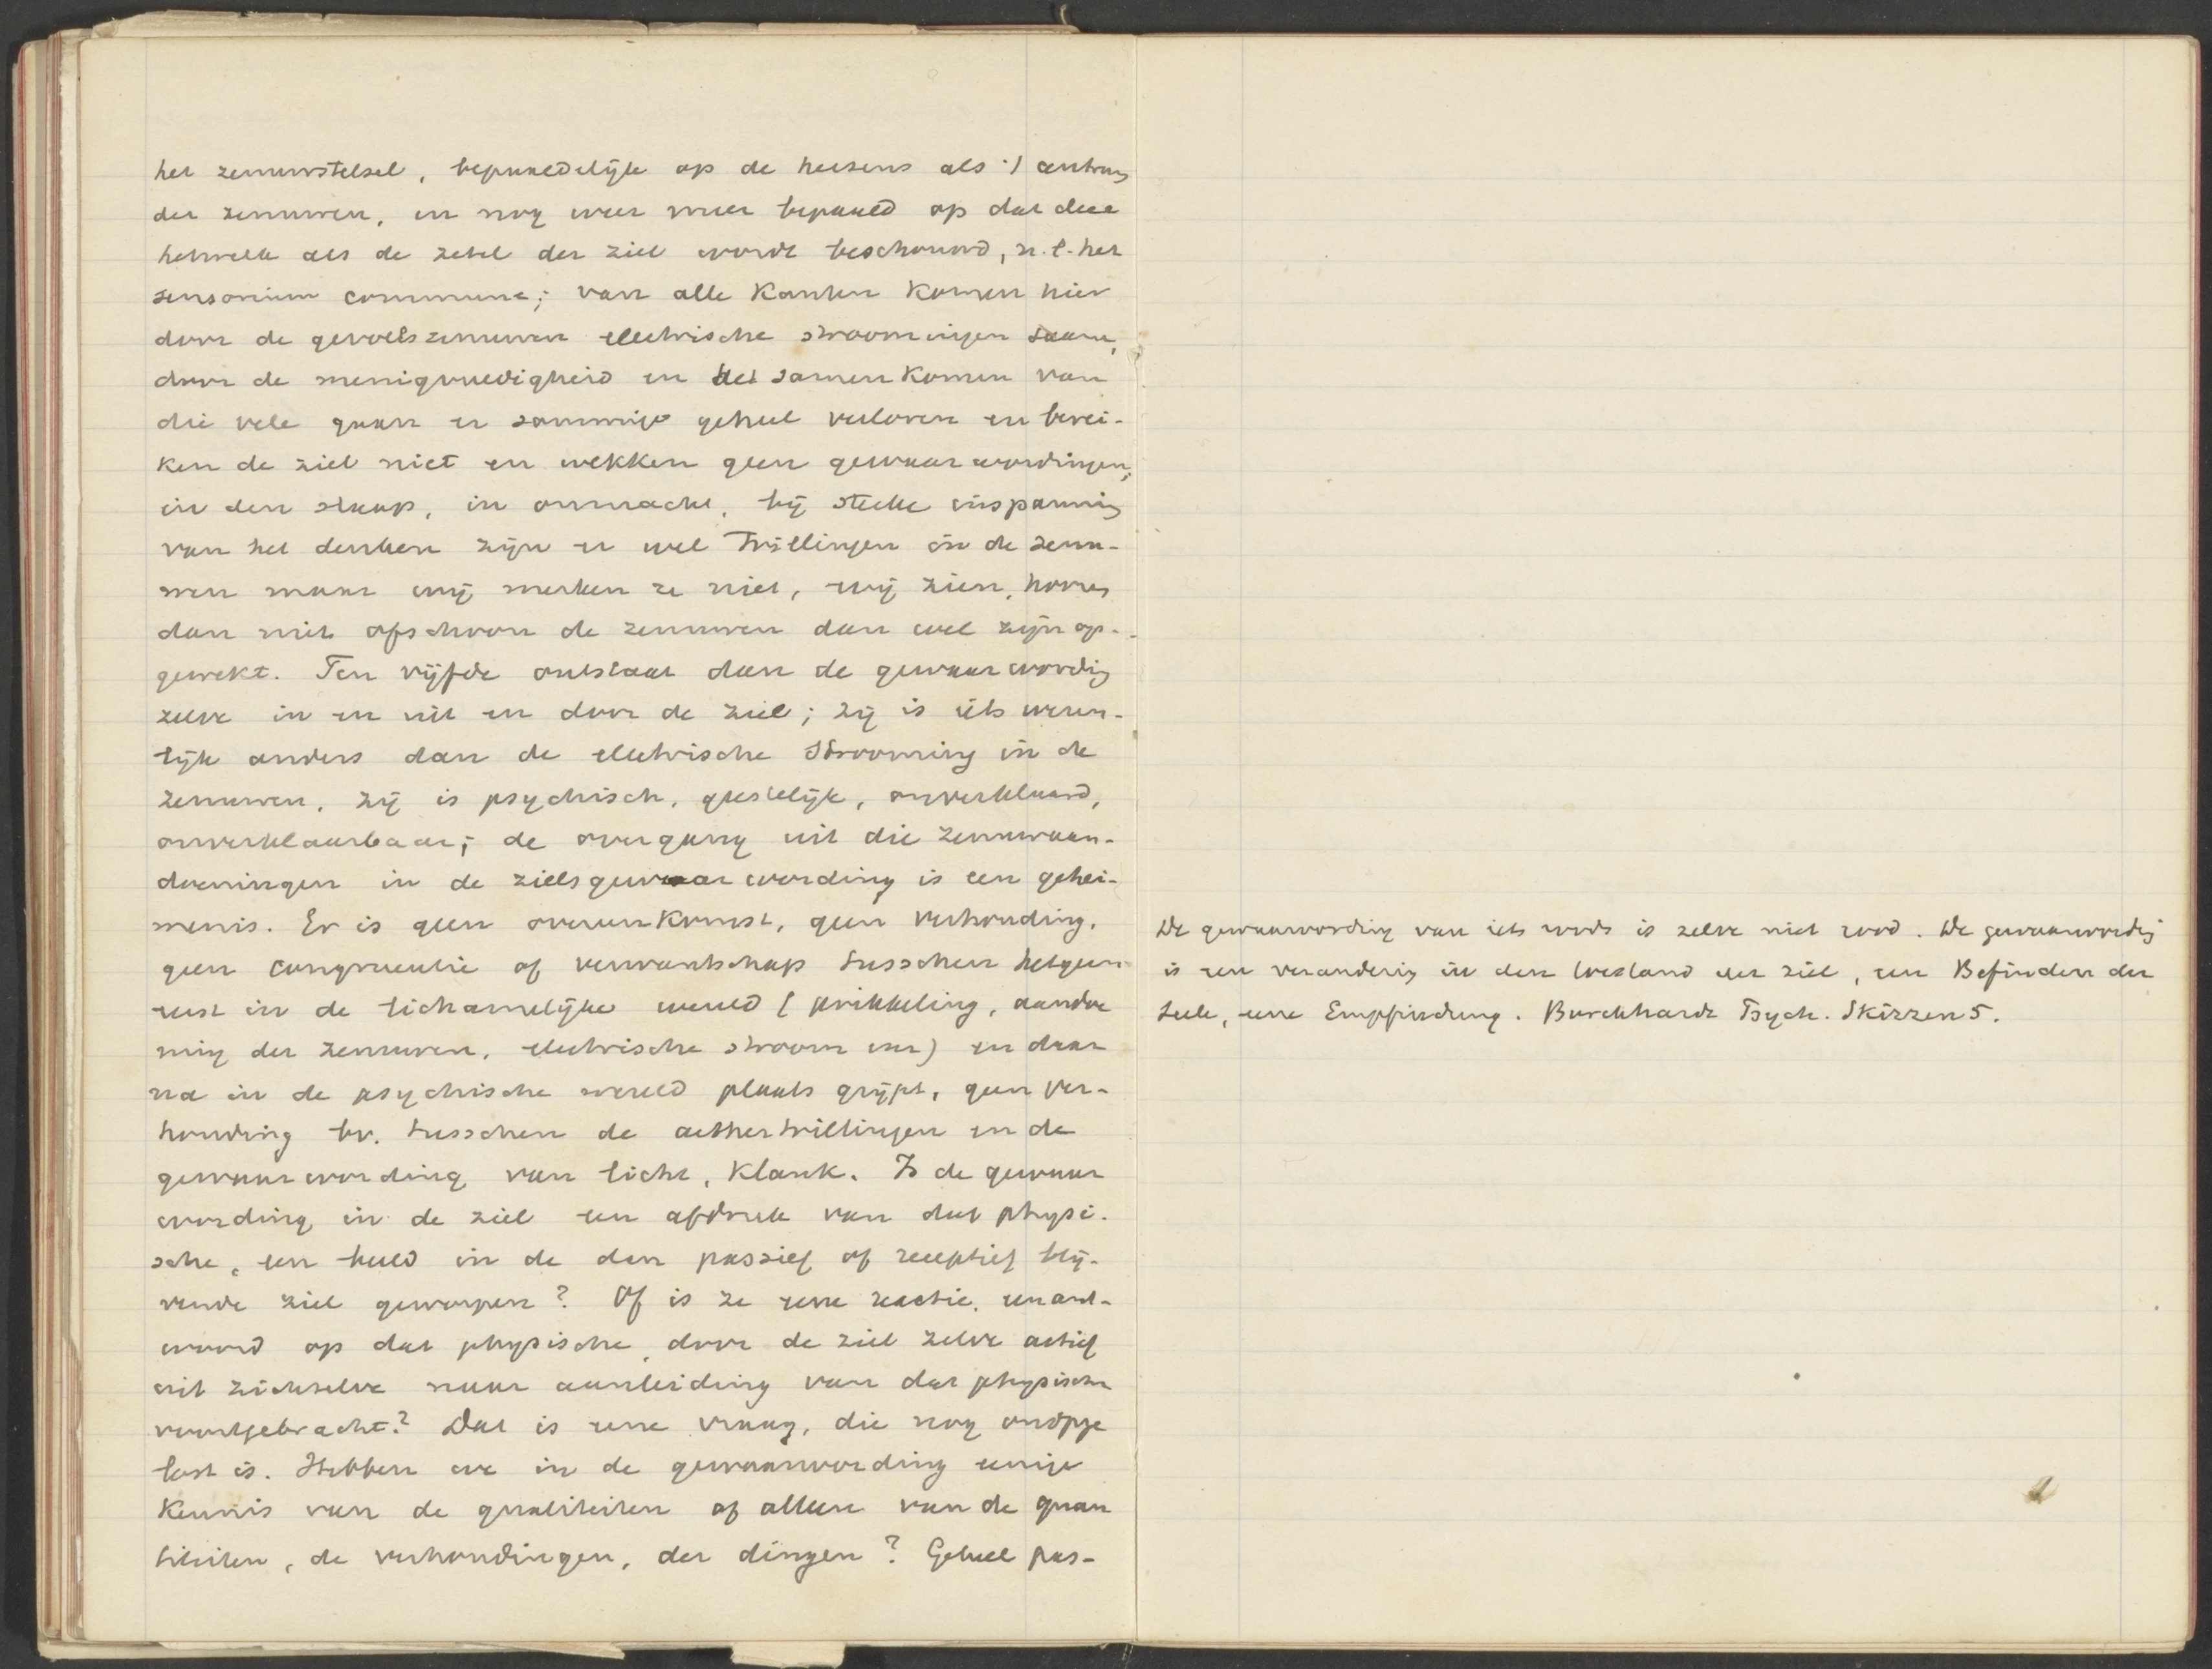 het zenuwstelsel, bepaaldelijk op de hersens als 't centrum
der zenuwen, en nog weer meer bepaald op dat deel
hetwelk als de zetel der ziel wordt beschouwd, n.l. het
sensorium commune; van alle kanten komen hier
door de gevoelszenuwen electrische stroomingen saam,
door de menigvuldigheid en het samenkomen van
die vele gaan er sommige geheel verloren en berei-
ken de ziel niet en wekken geen gewaarwordingen;
in den slaap, in onmacht, bij sterke inspanning
van het denken zijn er wel trillingen in de zenu-
wen maar wij merken ze niet, wij zien, hooren
dan niet ofschoon de zenuwen dan wel zijn op-
gewekt. Ten vijfde ontstaat dan de gewaarwording
zelve in en uit en door de ziel; zij is iets wezen-
lijk anders dan de electrische strooming in de
zenuwen, zij is psychisch, geestelijk, onverklaard,
onverklaarbaar; de overgang uit die zenuwaan-
doeningen in de zielsgewaarwording is een gehei-
menis. Er is geen overeenkomst, geen verhouding,
geen congruentie of verwantschap tusschen hetgeen
eerst in de lichamelijke wereld (prikkeling, aandoe
ning der zenuwen, electrische stroom enz) en daar
na in de psychische wereld plaats grijpt, geen ver-
houding bv. tusschen de aethertrillingen en de
gewaarwording van licht, klank. Is de gewaar
wording in de ziel een afdruk van dat physi-
sche, een beeld in de dan passief of receptief blij-
vende ziel geworpen? Of is ze eene reactie, een ant-
woord op dat physische, door de ziel zelve actief
uit zichzelve naar aanleiding van dat physische
voortgebracht? Dat is eene vraag, die nog onopge
lost is. Hebben we in de gewaarwording eenige
kennis van de qualiteiten of alleen van de quan
titeiten, de verhoudingen, der dingen? Geheel pas-
De gewaarwording van iets roods is zelve niet rood. De gewaarwording
is een verandering in den toestand der ziel, een Befinden der
Seele, eene Empfindung. Burckhardt Psych. Skizzen 5.